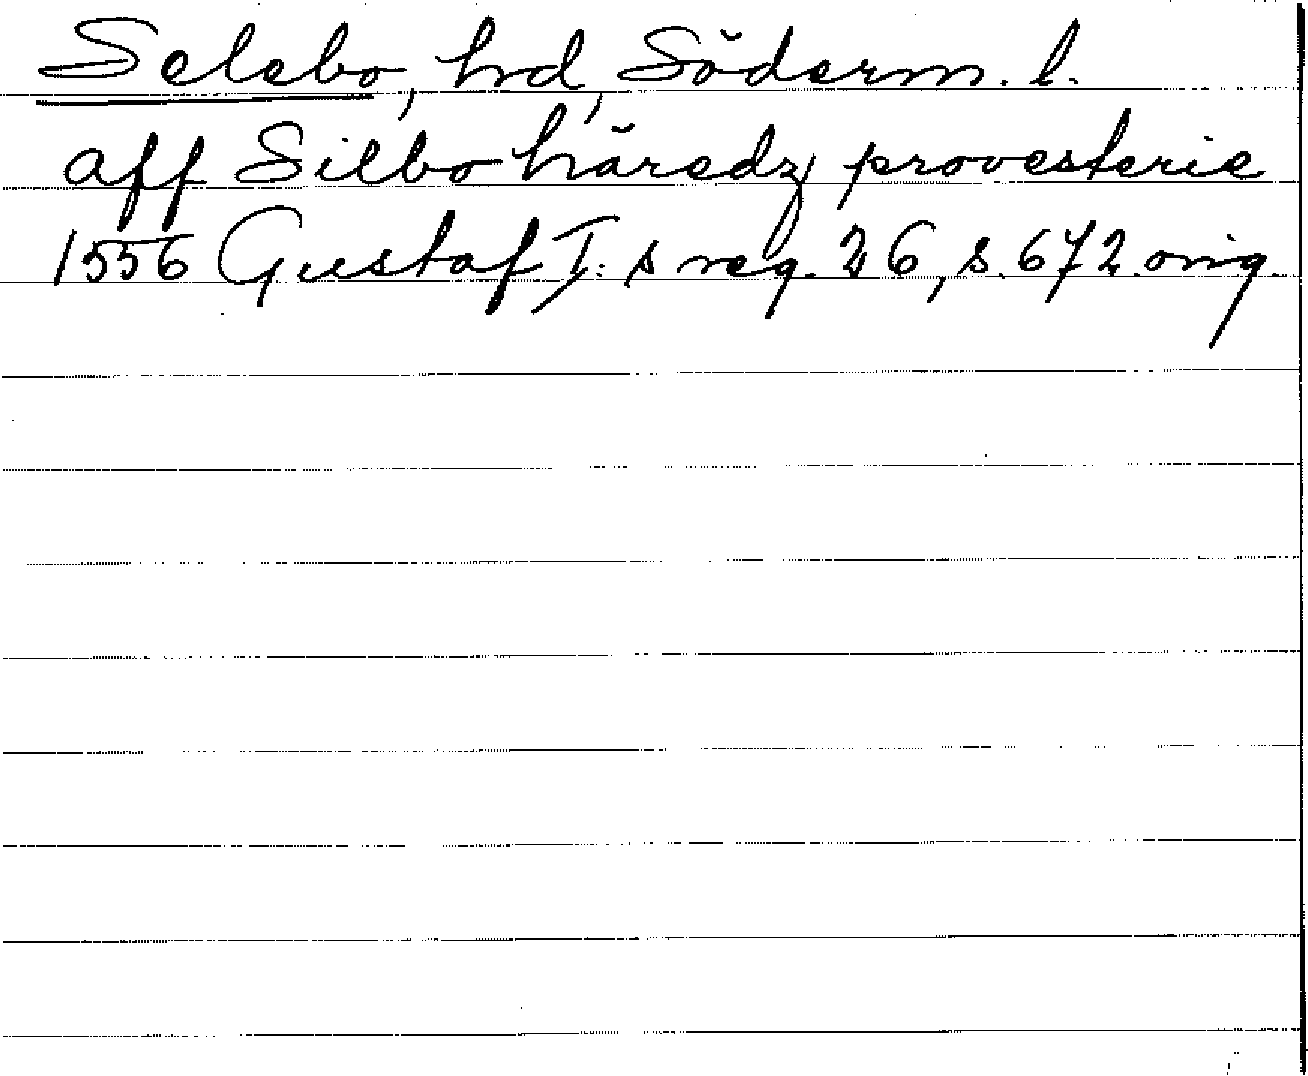 Selebo, hd, Söderm. l.
aff Silbo häredz provesterie
1556 Gustaf I:s reg. 26, s. 672. orig.